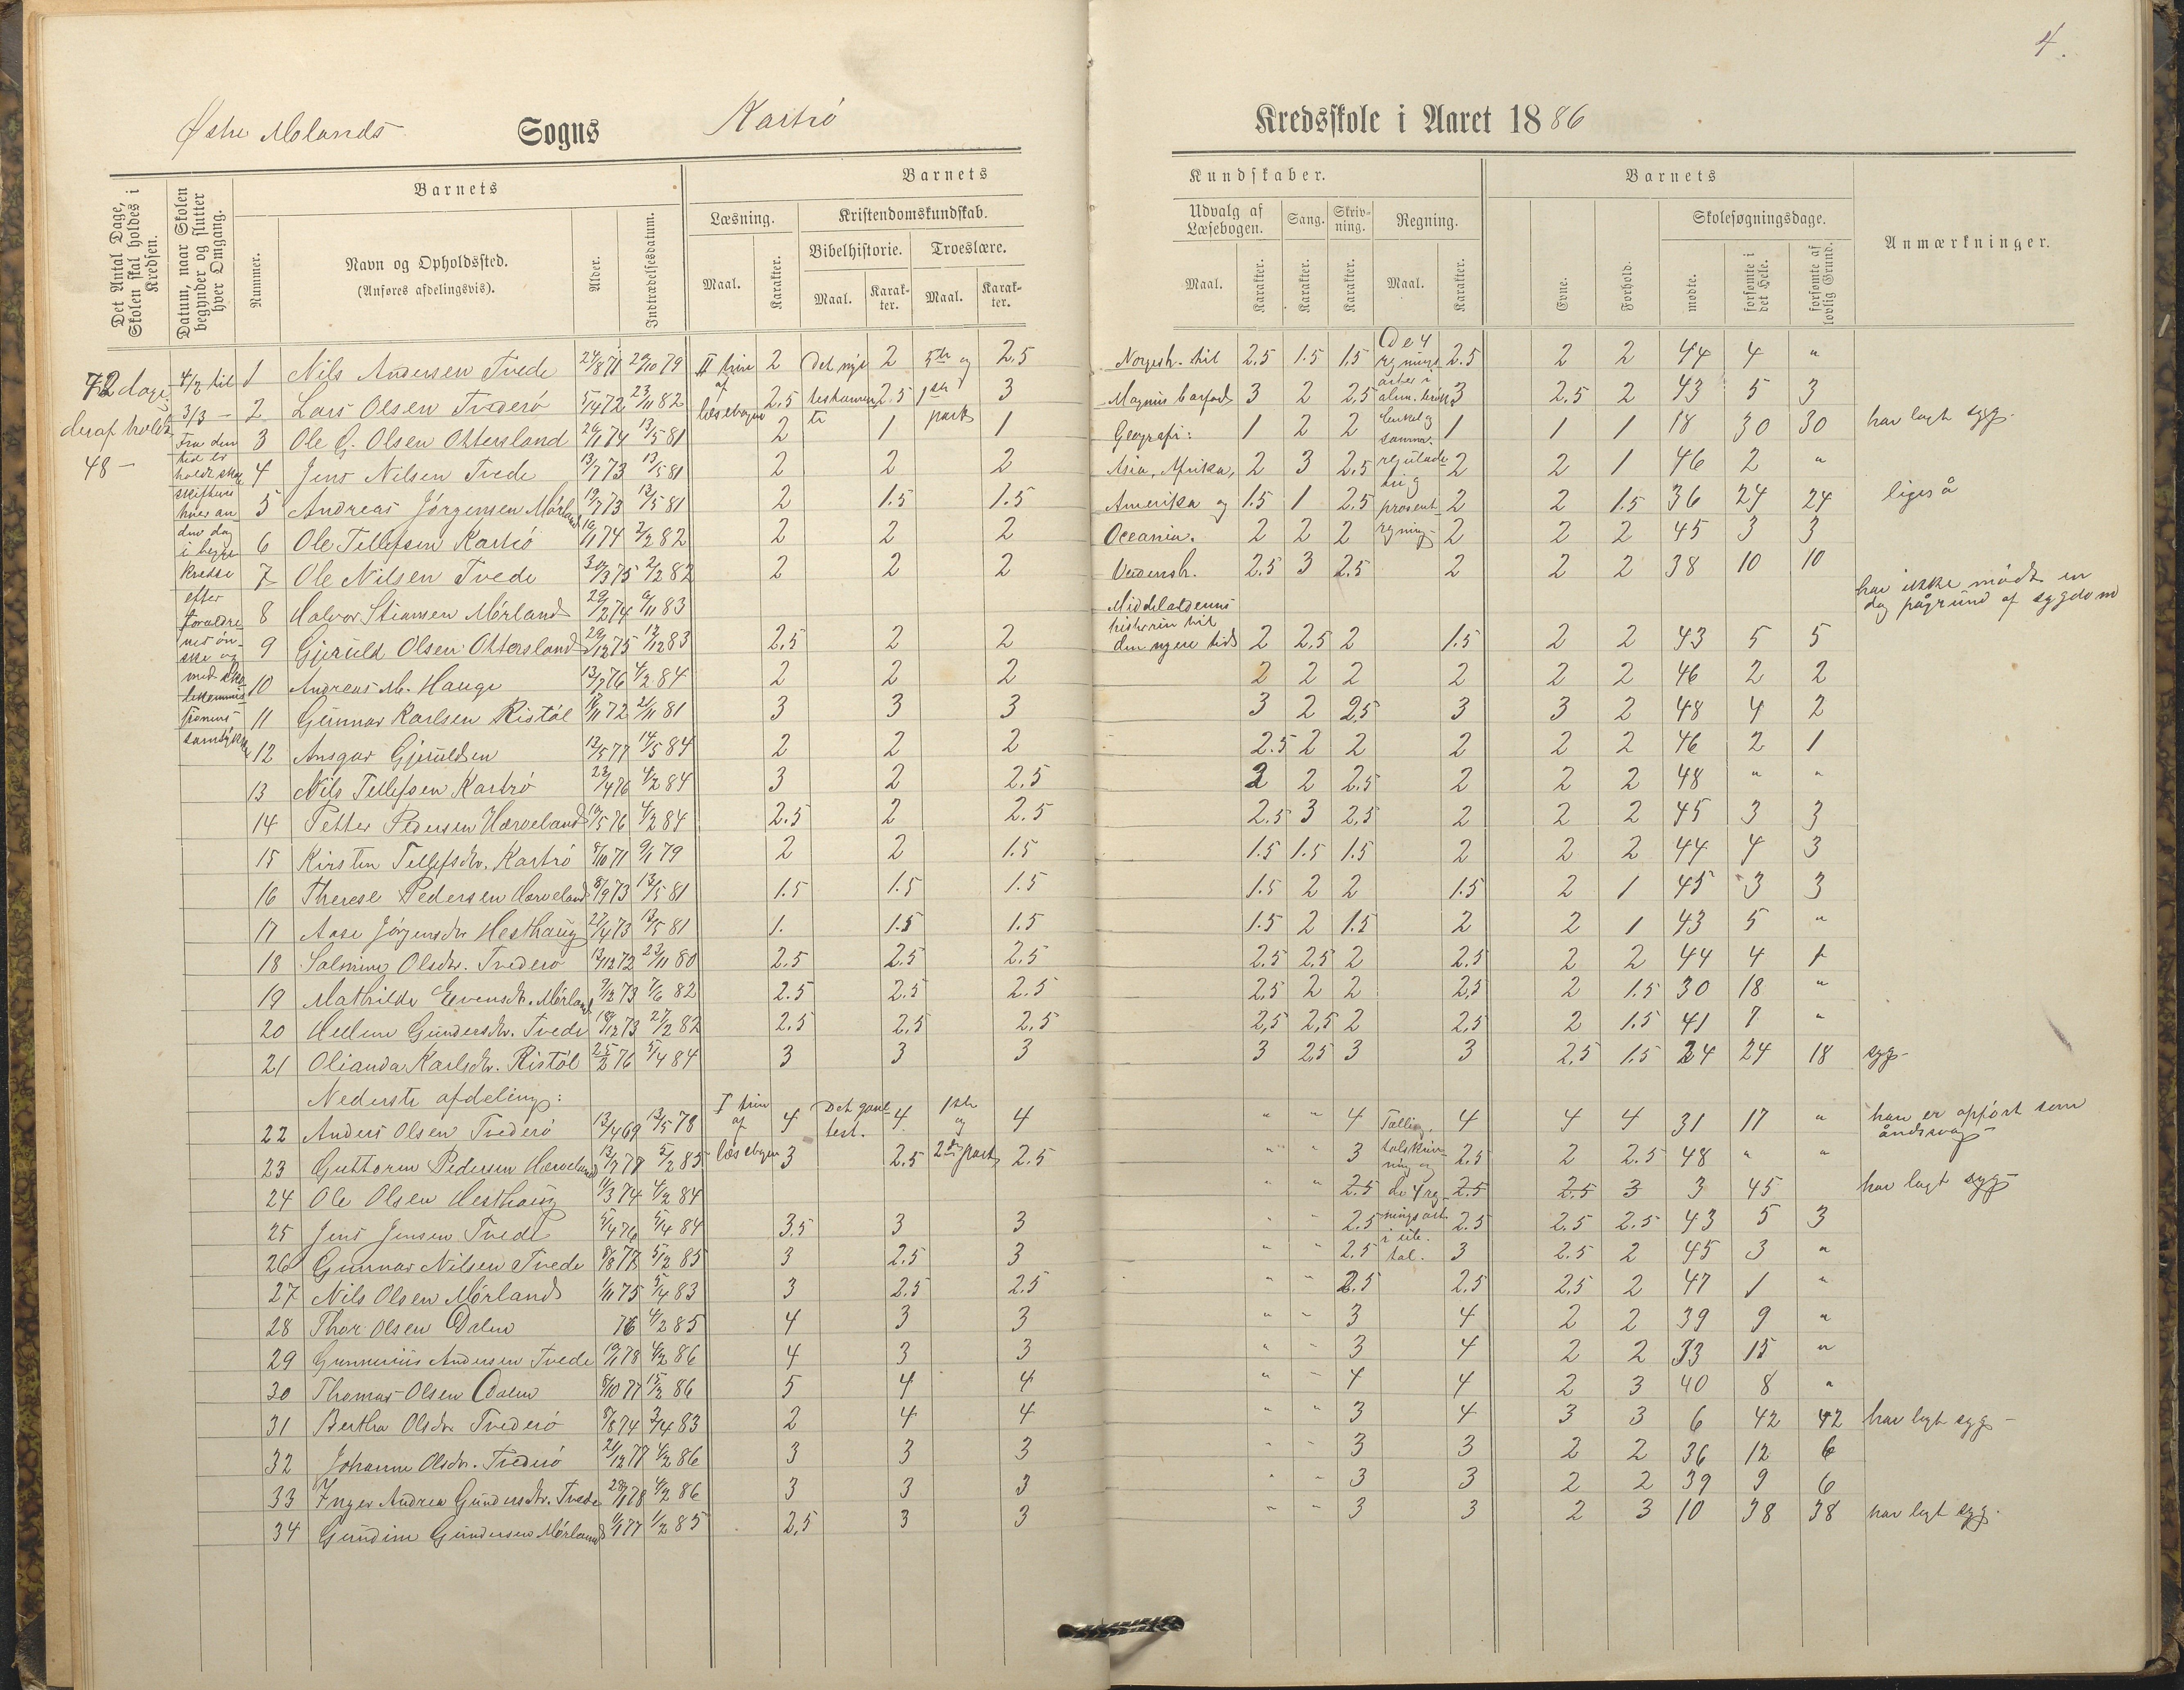 4.
Østre Molands Sogns Kaströ Kredsskole i Aaret 1886
Det Antal Dage, Skolen skal holdes i Kredsen.
Datum, naar Skolen begynder og slutter hver Omgang.
Barnets
Nummer.
Navn og Opholdssted.
(Anføres afdelingsvis).
Alder.
Indtrædelsesdatum.
Barnets Kundskaber.
Læsning.
Maal. Karakter.
Kristendomskundskab.
Bibelhistorie. Troeslære.
Maal. Karakter. Maal. Karakter.
Udvalg af Læsebogen. Sang. Skrivning. Regning.
Maal. Karakter. Karakter. Karakter. Maal. Karakter.
Barnets
Evne. Forhold.
Skolesøgningsdage.
mødte. forsømte i det Hele. forsømte af lovlig Grund.
Anmærkninger.
72 dage
deraf holdt
48 –
4/2 til
3/3 –
Fra den
tid er
holdt skole
skiftevis
hver an-
den dag
i begge
kredse
efter
foræld-re-
nes ön-
ske og
med sko-
lekommis-
sionens
samtykke
II trin af læsebogen
Det nye testamente
5te og 1ste part
Norgesh. til
Magnus barfod
Geografi:
Asia, Afrika,
Amerika og
Oceania.
Verdensh.
Middelalderens
historie til
den nyere tid
De 4 regnings
arter i
alm. brök
Enkel og
samme.
prosent
regning
1 Nils Andersen Tvede 24/8 71 20/10 79 2 2 2.5 2.5 1.5 1.5 2.5 2 2 44 4 "
2 Lars Olsen Tvederö 5/4 72 23/11 82 2.5 2.5 3 3 2 2.5 3 2.5 2 43 5 3
3 Ole G. Olsen Ottersland 26/1 74 13/5 81 2 1 1 1 2 2 1 1 1 18 30 30 har lagt syg.
4 Jens Nilsen Tvede 13/7 73 13/5 81 2 2 2 2 3 2.5 2 2 1 46 2 "
5 Andreas Jörgensen Mörland 19/7 73 13/5 81 2 1.5 1.5 1.5 1 2.5 2 2 1.5 36 24 24 ligeså
6 Ole Tellefsen Kaströ 19/1 74 2/2 82 2 2 2 2 2 2 2 2 2 45 3 3
7 Ole Nilsen Tvede 30/3 75 2/2 82 2 2 2 2.5 3 2.5 2 2 2 38 10 10
8 Halvor Stiansen Mörland 29/2 74 9/11 83 har ikke mödt en dag pågrund af sygdom
9 Gjeruld Olsen Ottersland 29/12 75 12/12 83 2.5 2 2 2 2.5 2 1.5 2 2 43 5 5
10 Andreas M. Hauge 13/7 76 4/2 84 2 2 2 2 2 2 2 2 2 46 2 2
11 Gunnar Karlsen Ristöl 18/11 72 2/11 81 3 3 3 3 2 2.5 3 3 2 48 4 2
12 Ansgar Gjeruldsen 12/5 77 14/5 84 2 2 2 2.5 2 2 2 2 2 46 2 1
13 Nils Tellefsen Kaströ 22/4 76 4/2 84 3 2 2.5 2 2 2.5 2 2 2 48 " "
14 Petter Pedersen Hærveland 10/5 76 4/2 84 2.5 2 2.5 2.5 3 2.5 2 2 2 45 3 3
15 Kirsten Tellefsdtr. Kaströ 8/10 71 9/1 79 2 2 1.5 1.5 1.5 1.5 2 2 2 44 4 3
16 Therese Pedersen Hærveland 8/9 73 13/5 81 1.5 1.5 1.5 1.5 2 2 1.5 2 1 45 3 3
17 Aase Jörgensdtr. Hesthaug 27/4 73 13/5 81 1. 1.5 1.5 1.5 2 1.5 2 2 1 43 5 "
18 Salmine Olsdtr. Tvederö 13/12 72 23/11 80 2.5 2.5 2.5 2.5 2.5 2 2.5 2 2 44 4 1
19 Mathilde Evensdtr. Mörland 9/12 73 7/6 82 2.5 2.5 2.5 2.5 2 2 2.5 2 1.5 30 18 "
20 Helene Gundersdtr. Tvede 18/12 73 27/2 82 2.5 2.5 2.5 2.5 2.5 2 2.5 2 1.5 41 7 "
21 Olianda Karlsdtr. Ristöl 25/2 76 5/4 84 3 3 3 3 2.5 3 3 2.5 1.5 24 24 18 syg
Nederste afdeling:
I trin af læsebogen
Det gamle test.
1ste og 2den part
Tællig,
talskriv-
ning og
de 4 reg-
ningsart.
i ube.
tal.
22 Anders Olsen Tvederö 13/4 69 13/5 78 4 4 4 " " 4 4 4 4 31 17 " han er opfört som åndssvag
23 Guttorm Pedersen Hærveland 13/7 77 5/2 85 3 2.5 2.5 " " 3 2.5 2 2.5 48 " "
24 Ole Olsen Hesthaug 11/3 74 4/2 84 " " 2.5 2.5 2.5 3 3 45 har lagt syg
25 Jens Jensen Tvede 5/4 76 5/4 84 3.5 3 3 " " 2.5 2.5 2.5 2.5 43 5 3
26 Gunnar Nilsen Tvede 8/8 77 5/2 85 3 2.5 3 " " 2.5 3 2.5 2 45 3 "
27 Nils Olsen Mörland 1/11 75 5/4 83 3 2.5 2.5 " " 2.5 2.5 2.5 2 47 1 "
28 Thor Olsen Dalen 76 4/2 85 4 3 3 " " 3 4 2 2 39 9 "
29 Gunnerius Andersen Tvede 19/1 78 4/2 86 4 3 3 " " 3 4 2 2 33 15 "
30 Thomas Olsen Dalen 8/10 77 15/2 86 5 4 4 " " 4 4 2 3 40 8 "
31 Bertha Olsdtr. Tvederö 8/8 74 3/4 83 2 4 4 " " 3 4 3 3 6 42 42 har lagt syg
32 Johanne Olsdtr. Tvederö 21/12 77 4/2 86 3 3 3 " " 3 3 2 2 36 12 6
33 Inger Andrea Gundersdtr. Tvede 28/1 78 4/2 86 3 3 3 " " 3 3 2 2 39 9 6
34 Gundine Gundersen Mörland 11/1 77 1/2 85 2.5 3 3 " " 3 3 2 3 10 38 38 har lagt syg.